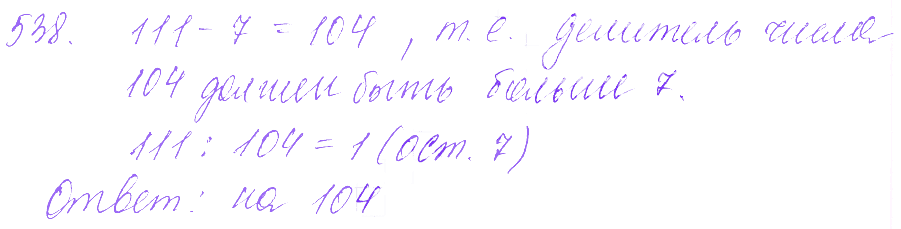 538. 111 - 7 = 104, т.е. делитель числа
104 должен быть больше 7.
111 : 104 = 1 (ост. 7)
Ответ: на 104